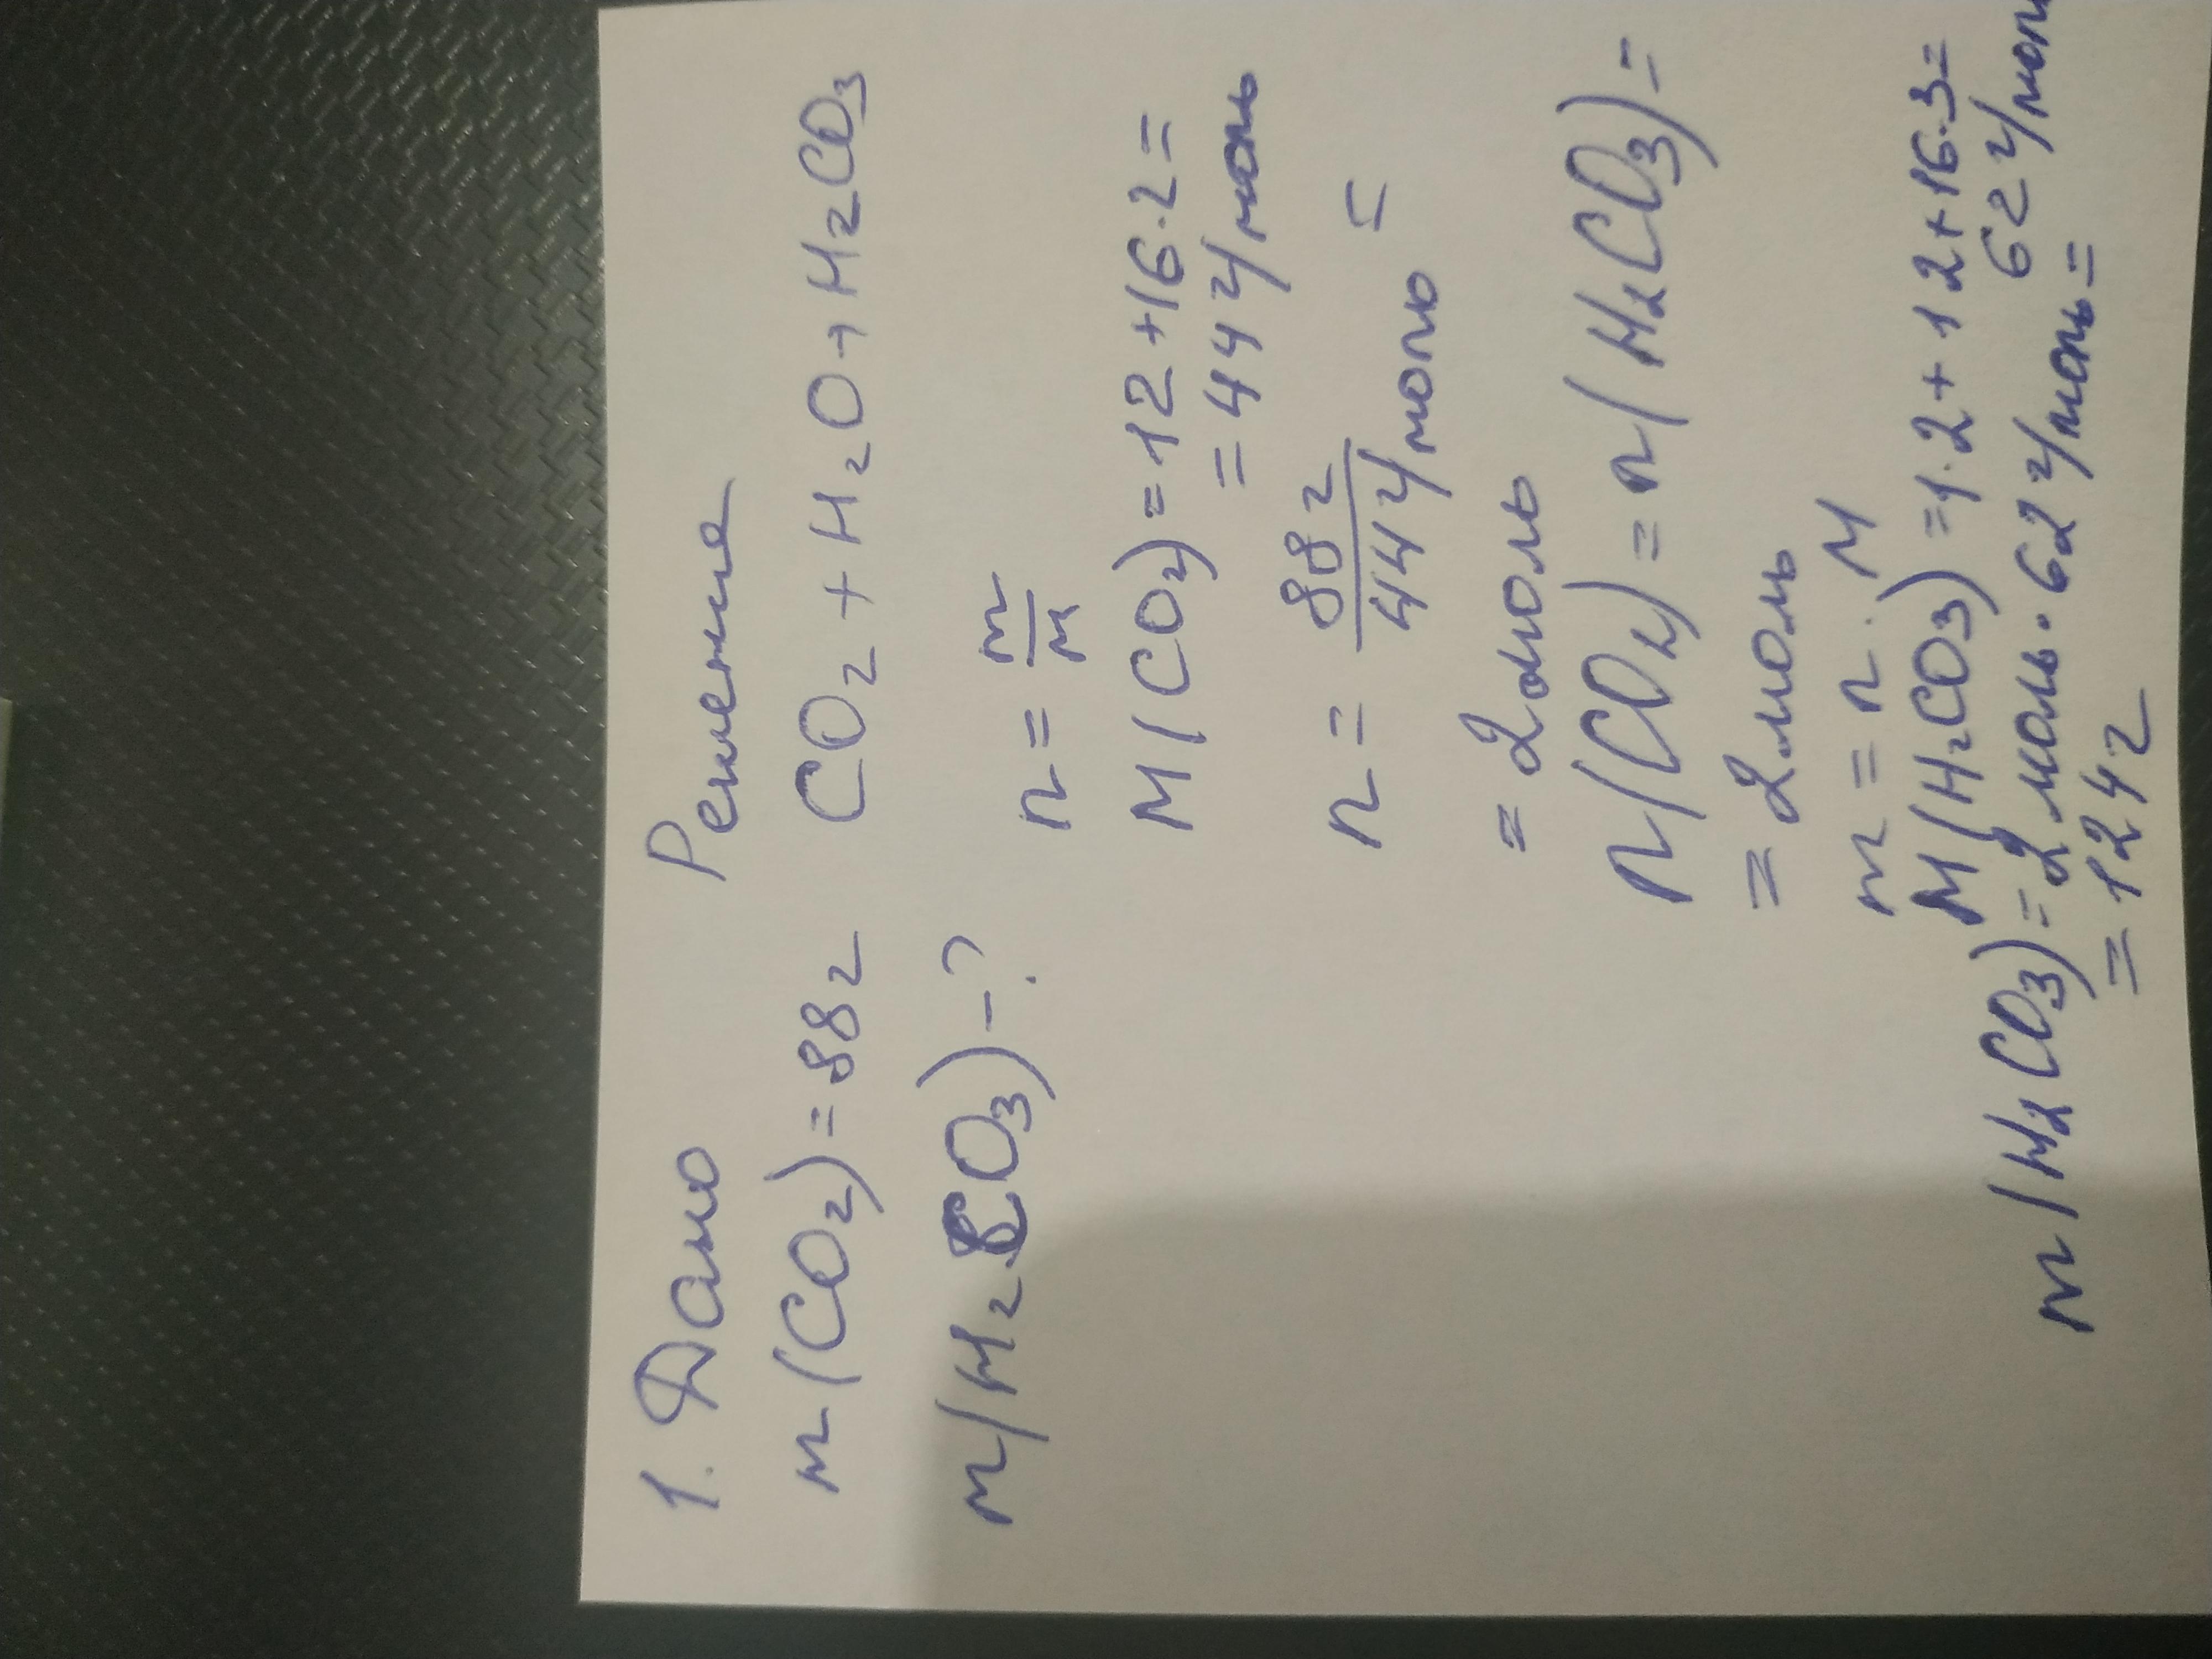 1. Дано Решение
m(CO₂)=88г CO₂ + H₂O → H₂CO₃
m(H₂CO₃)-?
n = m/M
M(CO₂)=12+16·2=
=44 г/моль
n = 88г/44 г/моль =
= 2 моль
n(CO₂) = n(H₂CO₃)=
= 2 моль
m = n · M
M(H₂CO₃)=1·2+12+16·3=
62 г/моль
m(H₂CO₃)=2 моль·62 г/моль=
=124г